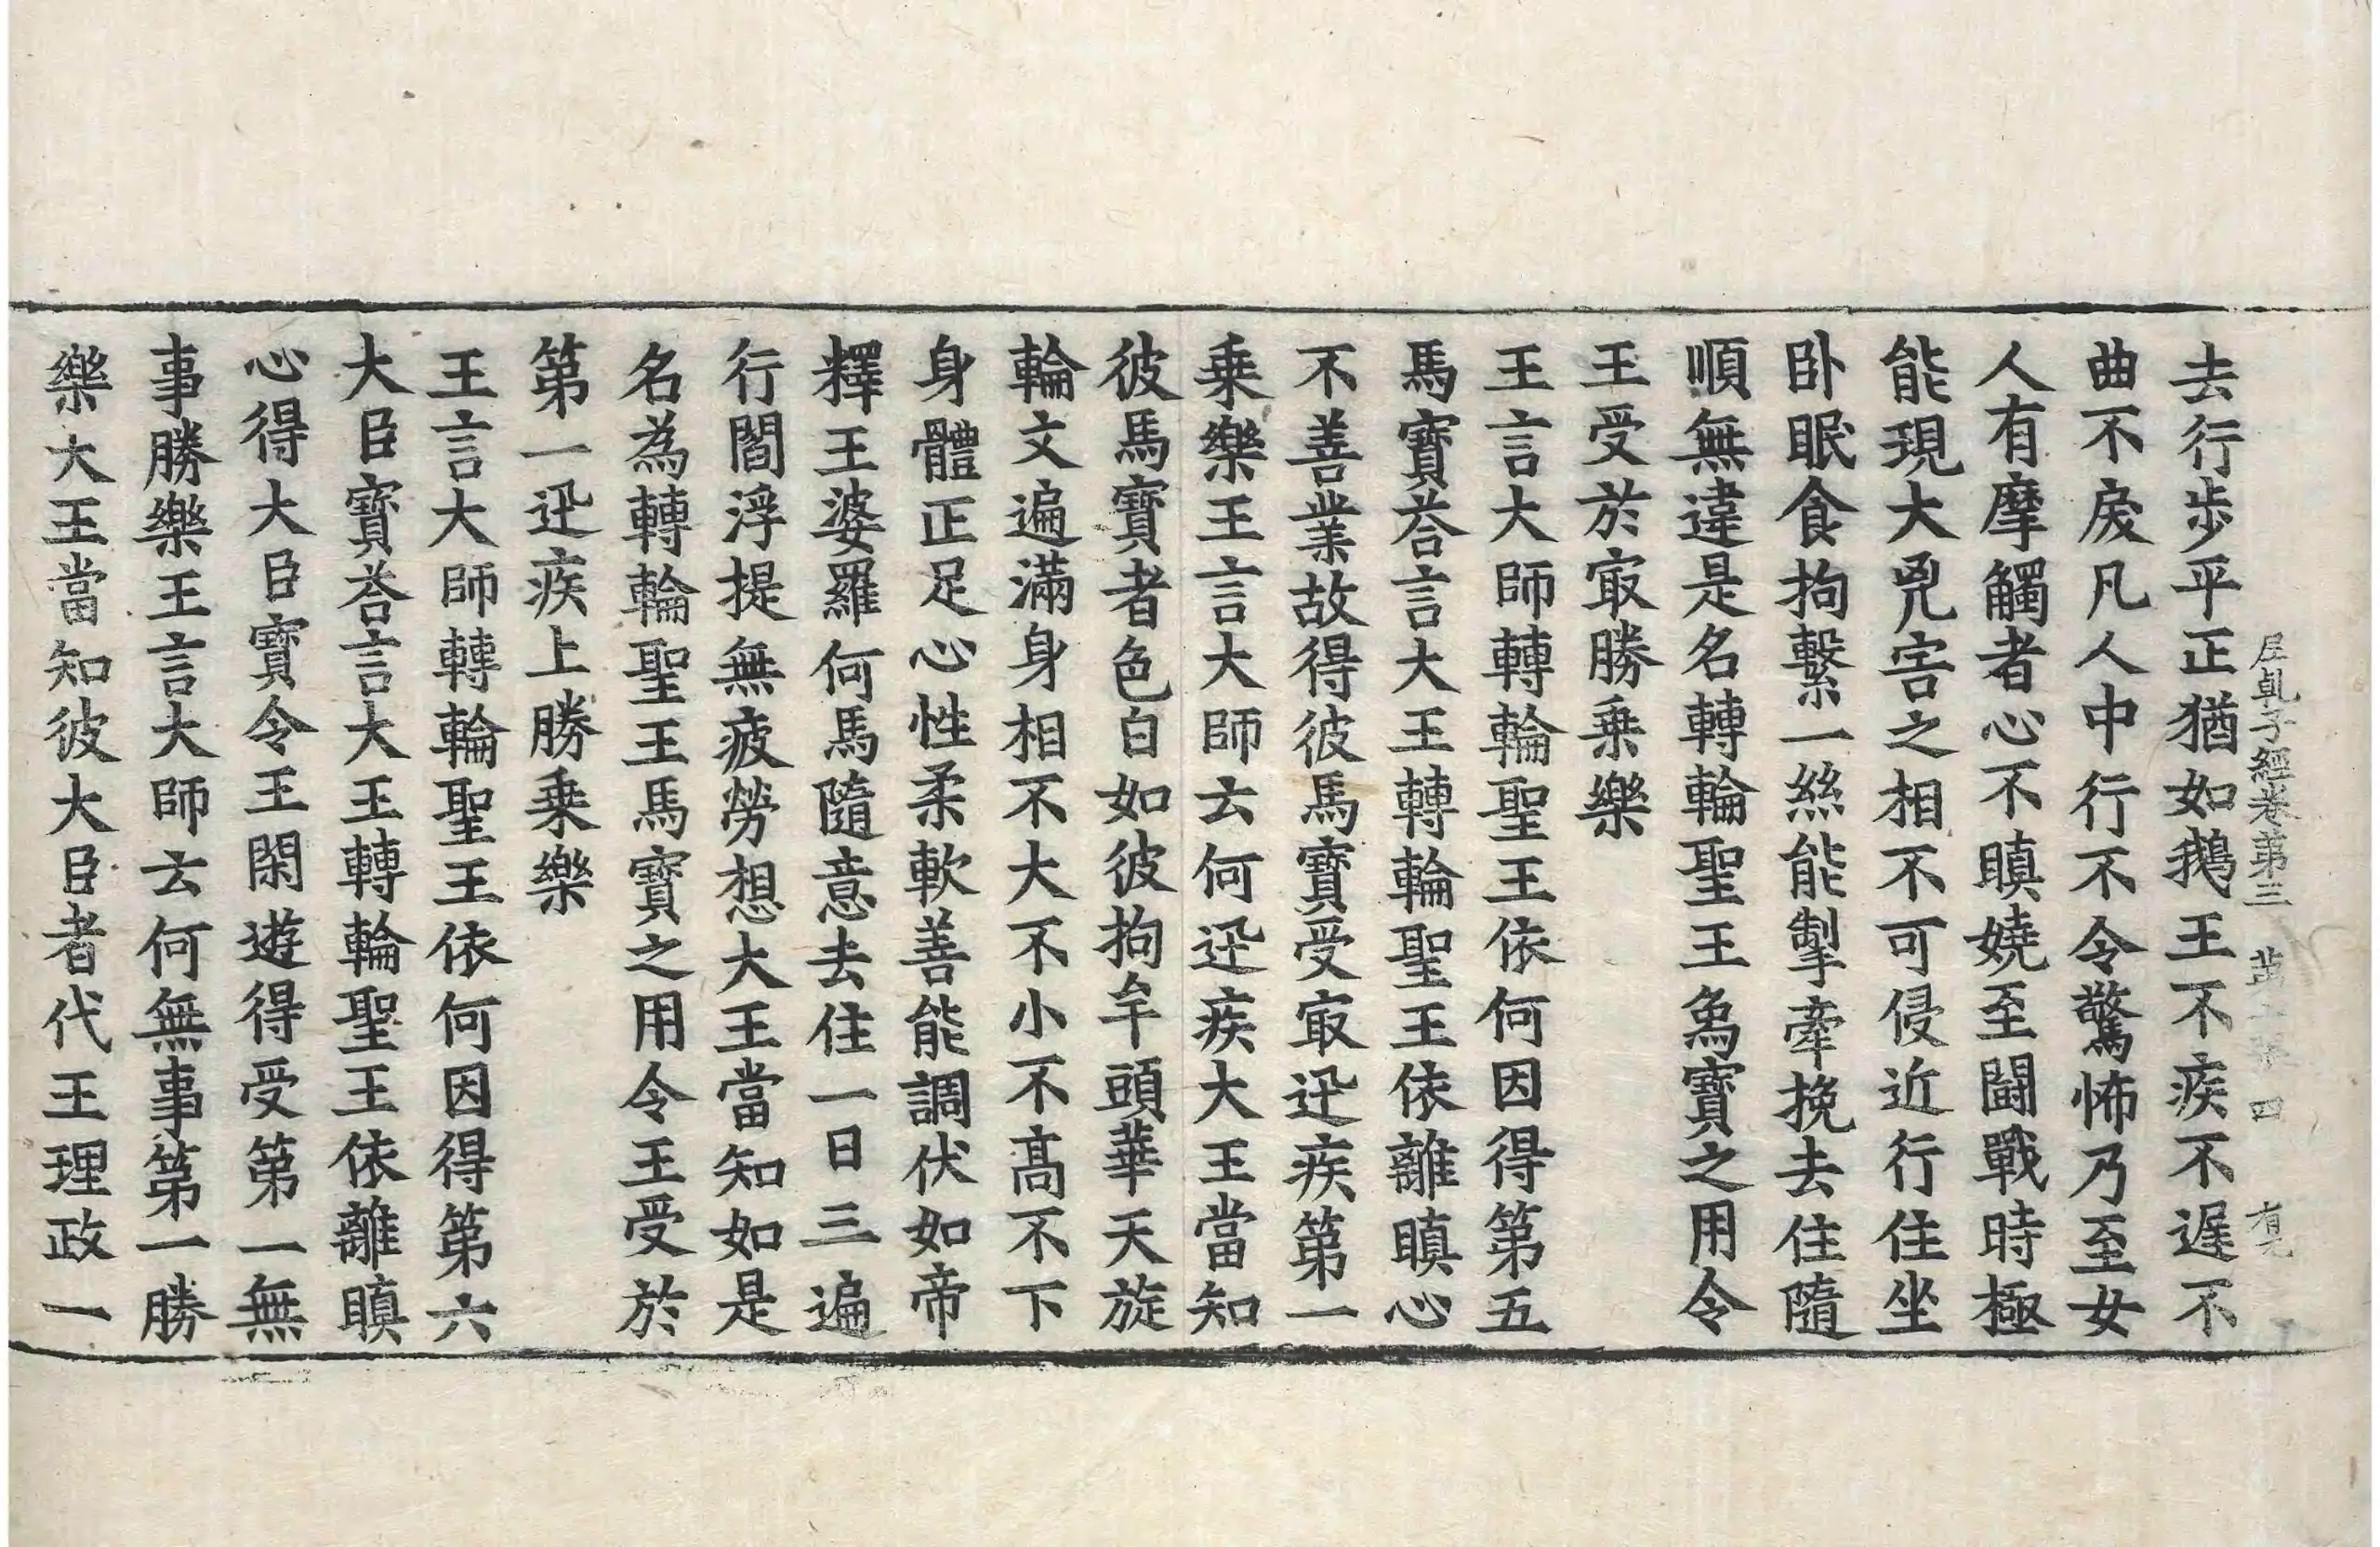 去行步平正猶如鵝王不疾不遲不
曲不戾凡人中行不令驚怖乃至女
人有摩觸者心不瞋嬈至鬪戰時極
能現大兇害之相不可侵近行住坐
卧眠食拘繫一絲能掣牽挽去住隨
順無違是名轉輪聖王象寶之用令
王受於冣勝乗樂
王言大師轉輪聖王依何因得第五
馬寶荅言大王轉輪聖王依離瞋心
不善業故得彼馬寶受冣迅疾第一
乗樂王言大師云何迅疾大王當知
彼馬寶者色白如彼拘牟頭華天旋
輪文遍滿身相不大不小不高不下
身體正足心性柔軟善能調伏如帝
釋王婆羅何馬隨意去住一日三遍
行閻浮提無疲勞想大王當知如是
名為轉輪聖王馬寶之用令王受於
第一迅疾上勝乗樂
王言大師轉輪聖王依何因得第六
大臣寶荅言大王轉輪聖王依離瞋
心得大臣寶令王閑遊得受第一無
事勝樂王言大師云何無事第一勝
樂大王當知彼大臣者代王理政一
尼乹子經卷第三 四